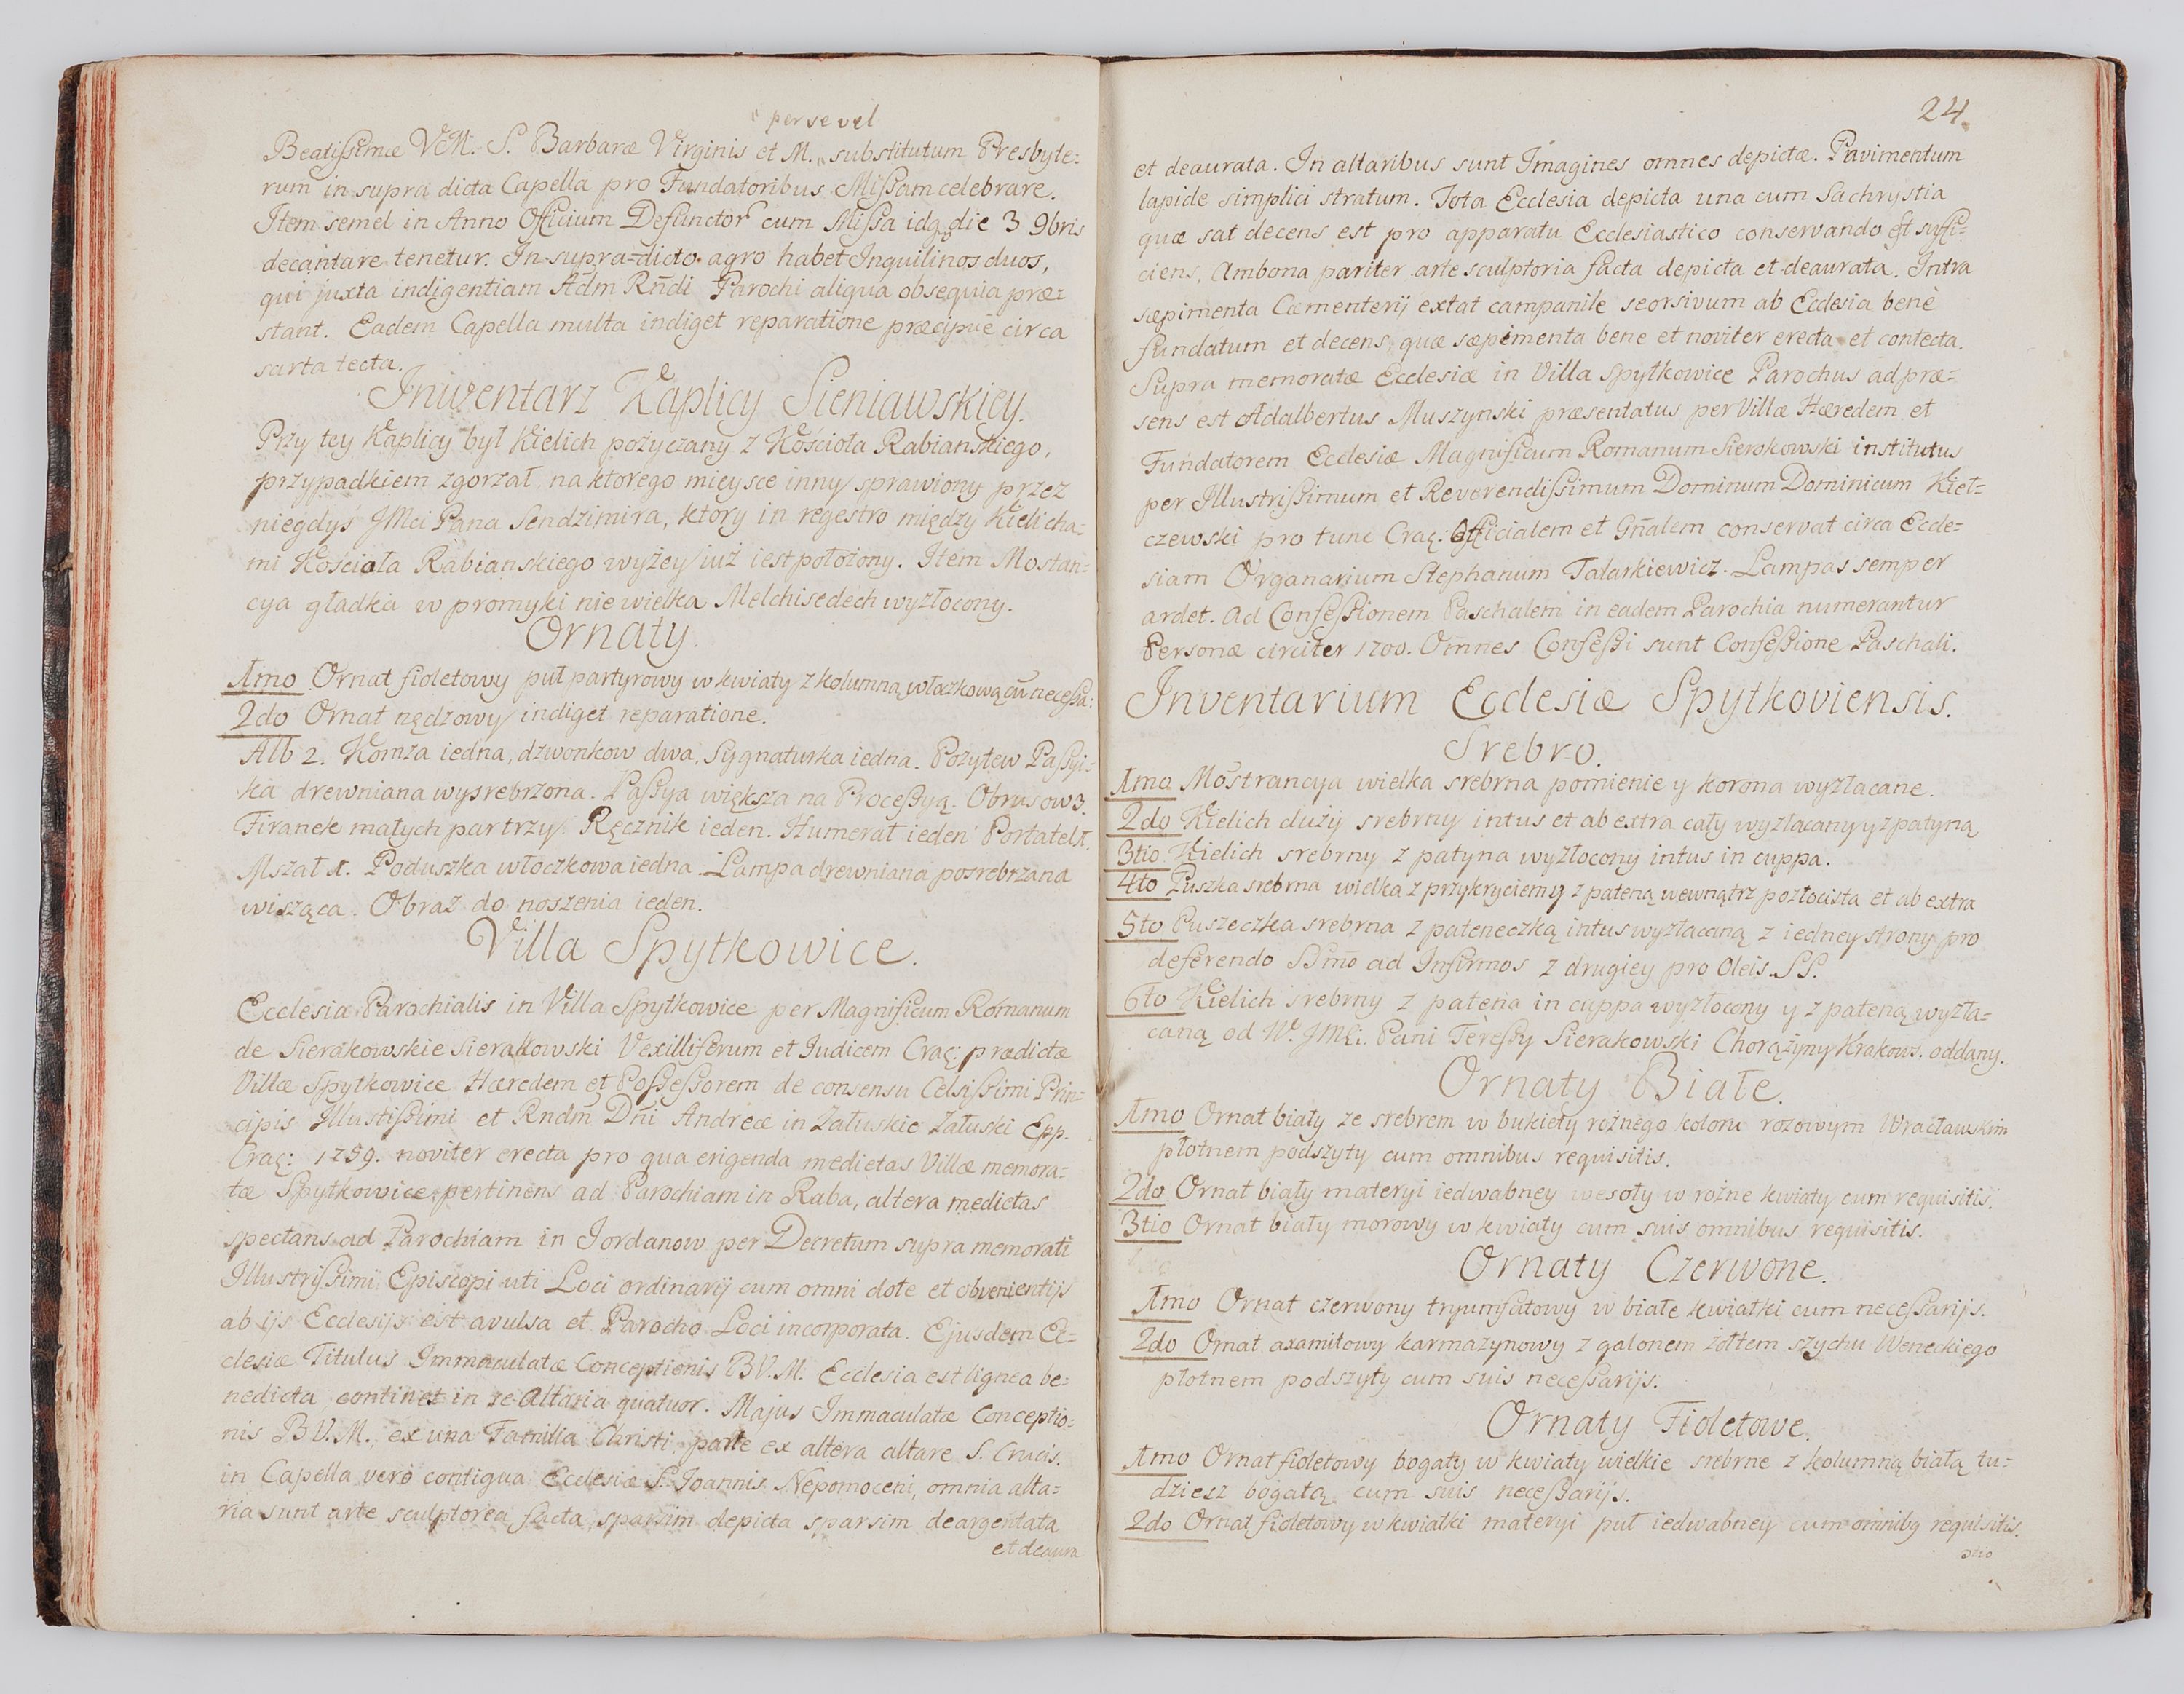 " per se vel
Beatissimæ V.M. S. Barbaræ Virginis et M. " substitutum Presbyte=
rum in supra dicta Capella pro Fundatoribus Missam celebrare.
Item semel in Anno Officium Defunctor cum Missa idq die 3 9bris
decantare tenetur. In supra=dicto agro habet Inquilinos duos,
qui juxta indigentiam Adm Rndi Parochi aliqua obsequia præ=
stant. Eadem Capella multa indiget reparatione præcipuè circa
sarta tecta.
Inwentarz Kaplicy Sieniawskiey.
Przy tey Kaplicy był Kielich pożyczany z Kościoła Rabianskiego,
przypadkiem zgorzał na ktorego mieysce inny sprawiony przez
niegdyś JMci Pana Sendzimira, ktory in regestro między Kielicha=
mi Kościoła Rabianskiego wyżey już iest położony. Item Mostan=
cya gładka w promyki nie wielka Melchisedech wyzłocony.
Ornaty.
1mo Ornat fioletowy puł partyrowy w kwiaty z kolumną włoczkową cū necessa:
2do Ornat nędzowy indiget reparatione.
Alb 2. Komża iedna, dzwonkow dwa, Sygnaturka iedna. Pozytew Passyi=
ka drewniana wysrebrzona. Passya większa na Processyą. Obrusow 3.
Firanek małych par trzy. Ręcznik ieden. Humerał ieden Portatel 1.
Mszał 1. Poduszka włoczkowa iedna. Lampa drewniana posrebrzana
wisząca. Obraz do noszenia ieden.
Villa Spytkowice.
Ecclesia Parochialis in Villa Spytkowice per Magnificum Romanum
de Sierakowskie Sierakowski Vexilliferum et Iudicem Crac: prædictæ
Villæ Spytkowice Hæredem et Possessorem de consensu Celsissimi Prin=
cipis Illustissimi et Rndm Dni Andreæ in Załuskie Załuski Epp.
Crac: 1759. noviter erecta pro qua erigenda medietas Villæ memora=
tæ Spytkowice pertinens ad Parochiam in Raba, altera medietas
spectans ad Parochiam in Jordanow per Decretum supra memorati
Illustrissimi Episcopi uti Loci ordinarij cum omni dote et obvenientijs
ab ijs Ecclesijs est avulsa et Parocho Loci incorporata. Ejusdem Ec=
clesiæ Titulus Immaculatæ Conceptionis B.V.M. Ecclesia est lignea be=
nedicta, continet in se Altaria quatuor. Majus Immaculatæ Conceptio=
nis B.V.M., ex una Familia Christi, parte ex altera altare S. Crucis.
in Capella verò contigua Ecclesiæ S. Joannis Nepomoceni, omnia alta=
ria sunt arte sculptorea facta, sparsim depicta sparsim deargentata
et deaura
24
et deaurata. In altaribus sunt Imagines omnes depictæ. Pavimentum
lapide simplici stratum. Tota Ecclesia depicta una cum Sachrystia
quæ sat decens est pro apparatu Ecclesiastico conservando et suffi=
ciens, Ambona pariter arte sculptoria facta depicta et deaurata. Intra
sæpimenta Cæmenterij extat campanile seorsivum ab Ecclesia benè
fundatum et decens, quæ sæpimenta bene et noviter erecta et contecta.
Supra memoratæ Ecclesiæ in Villa Spytkowice Parochus ad præ=
sens est Adalbertus Muszynski præsentatus per Villæ Hæredem et
Fundatorem Ecclesiæ Magnificum Romanum Sierokowski institutus
per Illustrissimum et Reverendissimum Dominum Dominicum Kieł=
czewski pro tunc Crac: Officialem et Gnalem conservat circa Eccle=
siam Organarium Stephanum Talarkiewicz. Lampas semper
ardet. Ad Confessionem Paschalem in eadem Parochia numerantur
Personæ circiter 1700. Omnes Confessi sunt Confessione Paschali.
Inventarium Ecclesiæ Spytkoviensis.
Srebro.
1mo Mostrancya wielka srebrna pomienie y korona wyzłacane.
2do Kielich duży srebrny intus et ab extra cały wyzłacany y z patyną
3tio Kielich srebrny z patyna wyzłocony intus in cuppa.
4to Puszka srebrna wielka z przykryciem y z pateną wewnątrz pozłocista et ab extra
5to Puszeczka srebrna z pateneczką intus wyzłacaną z iedney strony pro
deferendo SSmo ad Infirmos z drugiey pro Oleis SS.
6to Kielich srebrny z patena in cuppa wyzłocony y z pateną wyzła=
caną od W. JMci Pani Teressy Sierakowski Chorążyny Krakows. oddany.
Ornaty Białe.
1mo Ornat biały ze srebrem w bukiety rożnego koloru rozowym Wracławskim
płotnem podszyty cum omnibus requisitis.
2do Ornat biały materyi iedwabney wesoły w rożne kwiaty cum requisitis.
3tio Ornat biały morowy w kwiaty cum suis omnibus requisitis.
Ornaty Czerwone.
1mo Ornat czerwony tryumfatowy w białe kwiatki cum necessarijs.
2do Ornat axamitowy karmazynowy z galonem żołtem szychu Weneckiego
płotnem podszyty cum suis necessarijs.
Ornaty Fioletowe.
1mo Ornat fioletowy bogaty w kwiaty wielkie srebrne z kolumną białą tu=
dziesz bogatą cum suis necessarijs.
2do Ornat fioletowy w kwiatki materyi puł iedwabney cum omnibq requisitis.
3tio